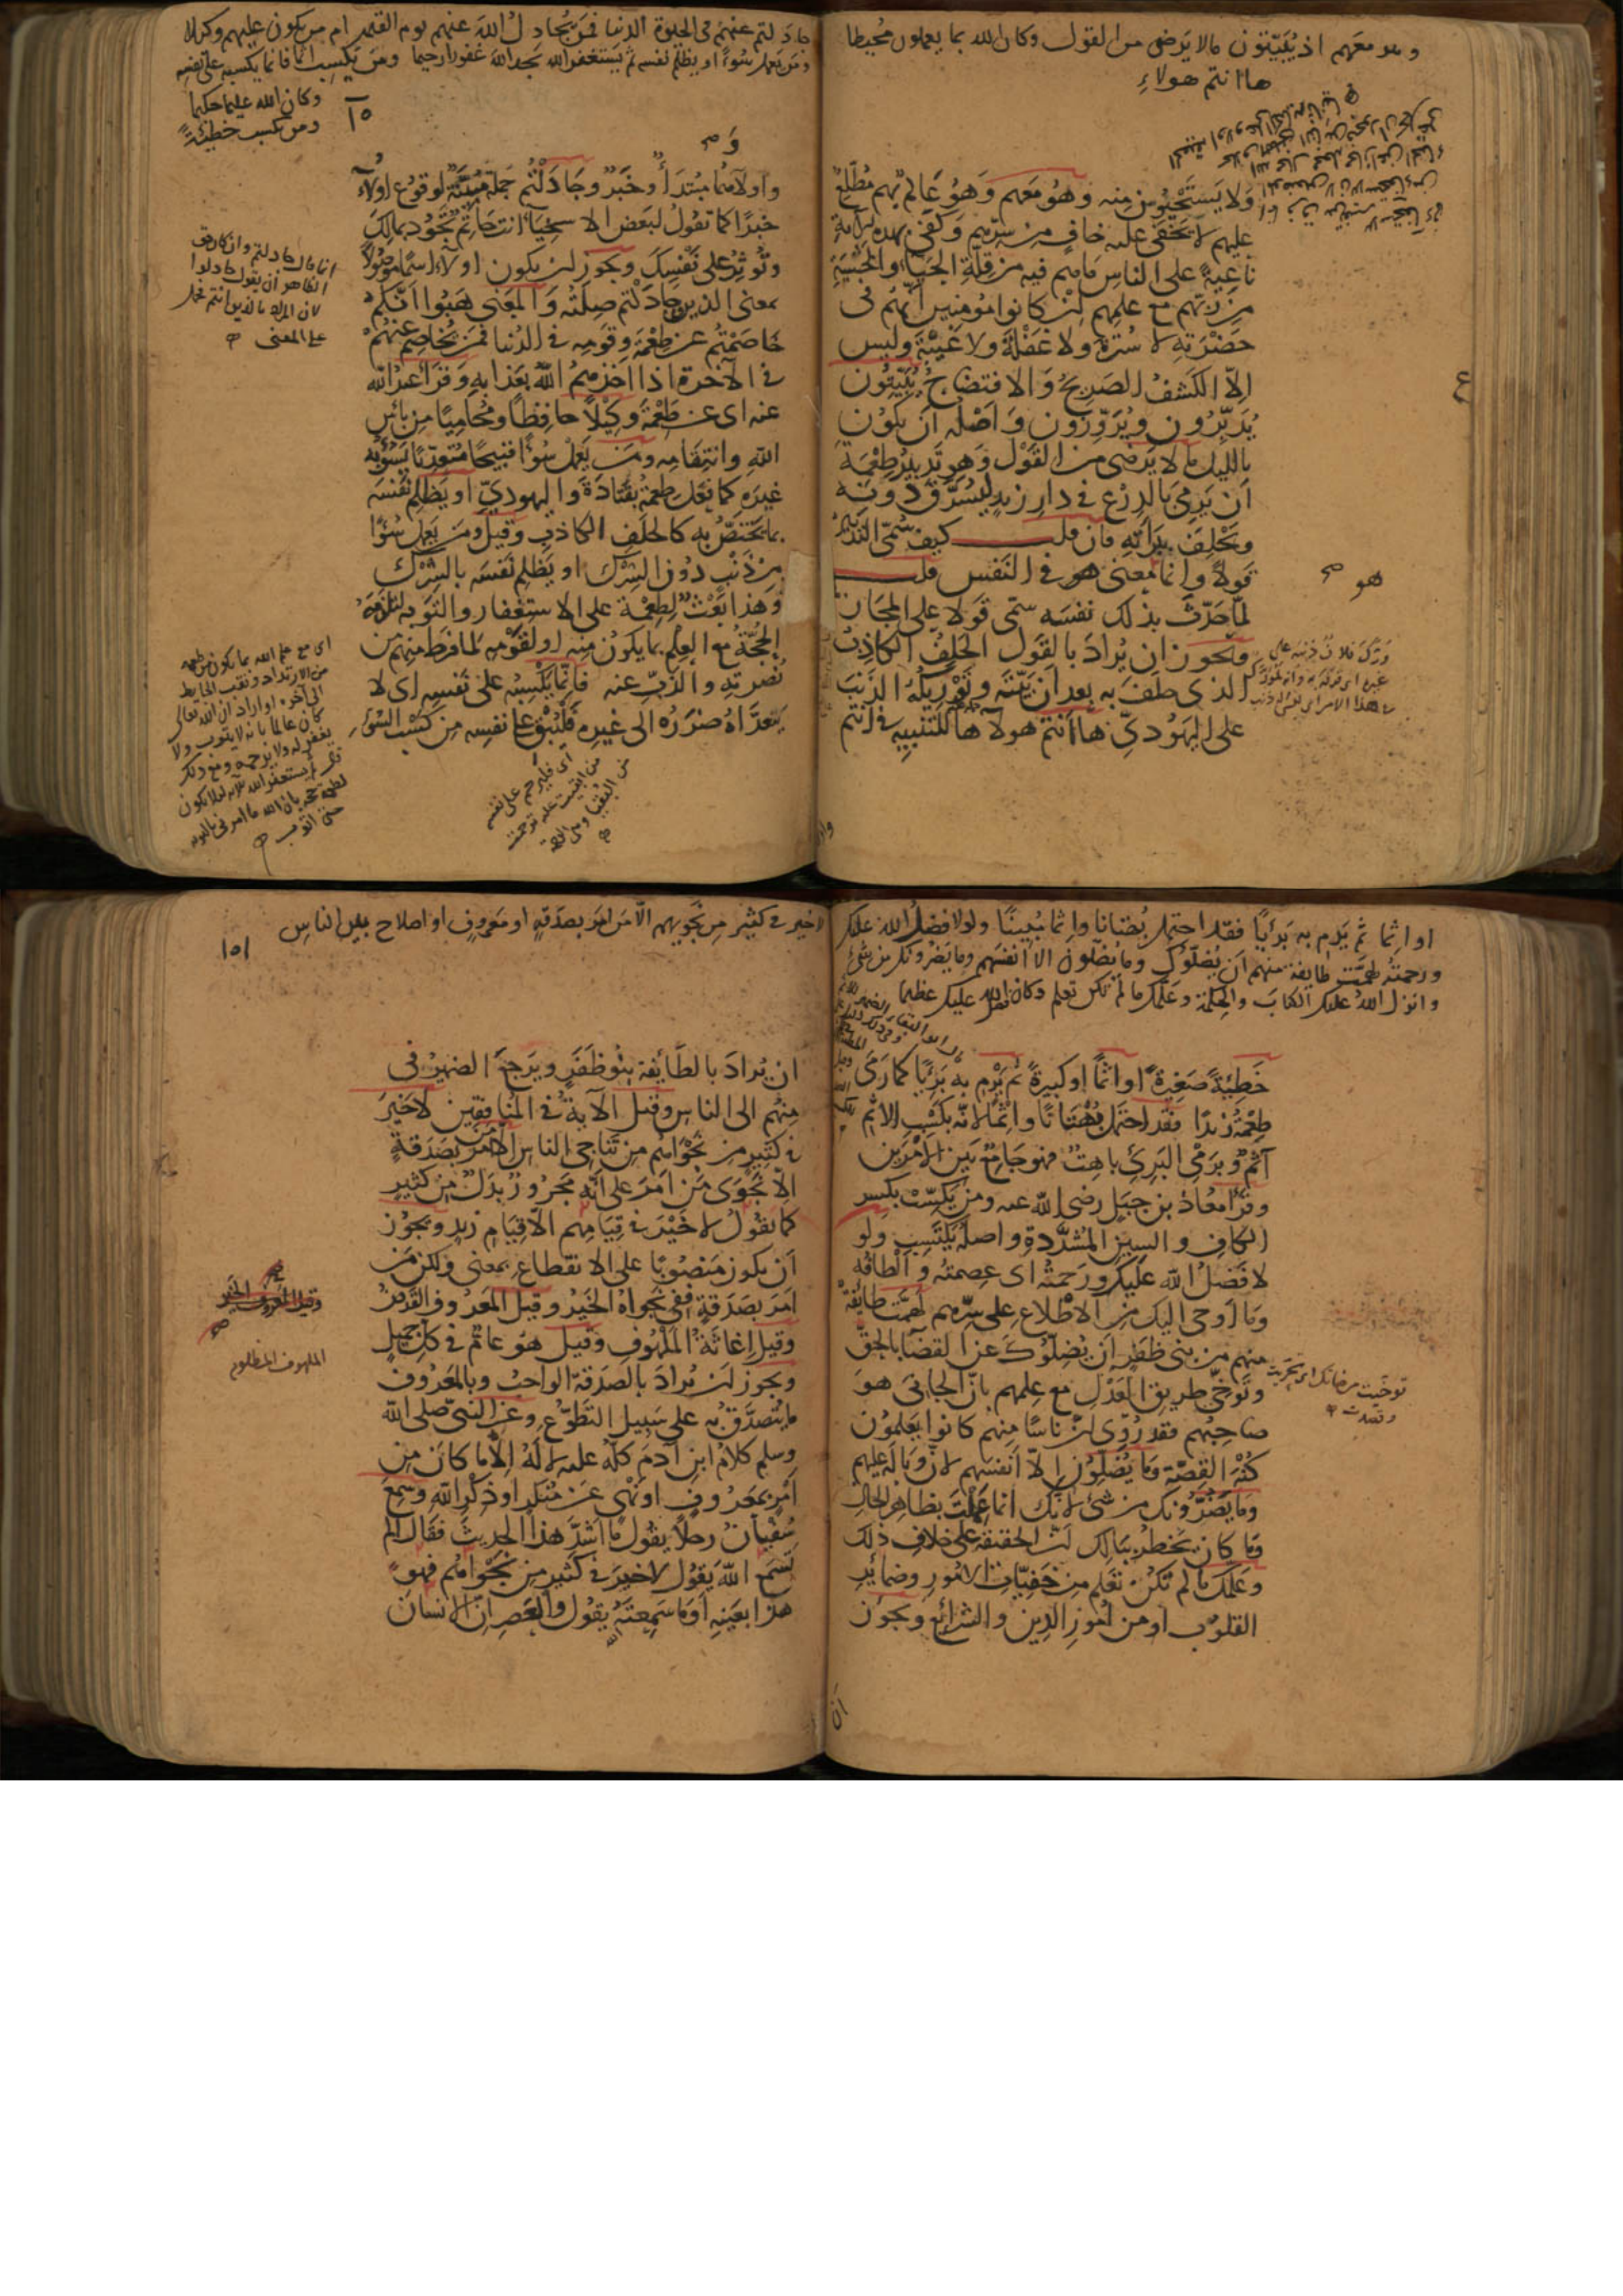 وهو معهم اذ يُبَيّتون مالا يَرضى من القول وكان الله بما يعملون محُيطا
هاانتم هولاءِ
ولا يَستَحْيُون منه وَهُوَ مَعَهم وَهُوَ عَالمٌ بهم مُطَّلعٌ
عليهم لا يَخفى عليه خافٍ من سِرّهم وَكفى بهذه الآية
ناعِيةً على الناس ما هم فيه من قلّة الحَيَاءِ والخشيَةِ
من ربّهم مع علمهم ان كانوا مؤمنين انّهم في
حَضْرَتهِ لا سُترةَ ولا غَفْلَةَ ولا غَيْبَةَ وليس
الّا الكَشفُ الصَرِيحُ وَالافتضاحُ يُبَيّتُون
يُدَبّرُون ويُزَوّرُون وَاَصْلُه اَن يكوُن
بالليل مالا يَرضى من القَوْل وَهو تَدبيرُ طعْمَةَ
اَن يَرمِيَ بالدِرْع في دار زيدٍ ليُسَرَّقَ دُونَه
وَيَحْلِفَ ببَرآءته فان قلـــت كيف سُمّى التَدبيرُ
قولاً وانما هو معنى في النَفس قلـــت
لمّا حَدّثَ بذلك نفسَه سمّى قولا على المجَاز
ويجوز ان يُرادَ بالقَول الحَلِفُ الكاذِبُ
الذى حلَفَ به بعد ان بَيَّتَه وتَوْرِيكُهُ الذَنبَ
على اليَهُودىّ هاانتم هولآء ها للتنبيه في انتم
هو صح
ع
جادَلتم عنهُم في الحيوة الدنيا فمَن يُجادلُ اللهَ عنهم يوم القيمة ام من يكون عليهم وكيلا
ومَن يَعمل سُوءًا او يظلم نفسه ثم يَستغفر اللهَ يَجد اللهَ غفورا رحيما ومَن يكسِب اثما فانما يكسبه على نفسه
وكان الله عليما حكيما
ومن يكسب خطيئةً
١٥٠
وَاولآءِ وهُما مُبتَدَأٌ وخَبَرٌ وجَادَلْتُم جملة مُبَيّنَة لوقوُع اولآء
خبرًا كما تقولُ لبَعض الاسخياءِ انت حَاتِمٌ تَجُود بمالِكَ
وتُوثِرُ على نَفْسِكَ ويجوز ان يكون اولآء اسمًا موصُولاً
بمعنى الذين جَادَلتم صِلتُه والمَعنى هَبُوا انّكم
خَاصَمْتُم عن طِعْمَةَ وقومِه في الدُنيا فمَن يُخاصِم عنهُم
في الآخرة اذا اخَذهُمُ اللهُ بعَذابهِ وَقرَأ عبدُ اللّه
عنه اى عن طِعْمَةَ وكيْلاً حافِظًا ومُحَامِيًا مِن بَأس
اللهِ وانتِقامِه ومَن يَعمَل سُوءًا قبيحًا مُتعدّيًا يَسُوءُ به
غيرَه كما فَعَل طِعمَةُ بقَتَادَةَ واليهوديّ او يَظلِم نَفسَه
بما يَختَصُّ به كالحلف الكاذب وقيل ومَن يَعمل سُوءًا
من ذَنْبٍ دوُن الشِرْك او يَظلم نَفسَه بالشِرْك
وَهذا بَعْثٌ لِطِعْمَةَ على الاستغفار والتوبةِ لتلزَمَهُ
الحُجَّةُ مع العِلم بما يكوُن منه او لقَوْمِه لما فرَطَ منهم من
نُصْرتهِ والذَبِّ عنه فانّما يَكْسِبُه على نَفسِه اى لا
يتعدَّاهُ ضرَرُه الى غيره فليُبْقِ على نفسِه من كَسْب السُوْءِ
انما قال جادلتم وان كان
الظاهر أن يقول جادلوا
لان المراد بالذين انتم فحمل
على المعنى
اى مع علم الله بما يكون من طعمه
من الارتداد ونقب الحايط
الى آخره او اراد ان الله تعالى
كان عالما بانه لا يتوب ولا
يغفر له ولا يرحمه ومع ذلك
اى فليرحم على نفسه
من ابقيت عليه ترحمت
او اثما ثم يَرم به بَرئيًا فقد احتمل بُهتانا واثما مُبينًا ولولا فضل الله عليك
ورحمتُه لهمّت طايفة منهم اَن يُضِلّوك وما يُضلّون الا اَنفسَهم وما يَضُرّونك من شئ
وانزل اللهُ عليك الكتابَ والحِكمةَ وعَلّمك ما لم تكن تعلم وكان فضل الله عليك عظيما
خَطِئَةً صَغِيرةً او اثمًا او كبيرةً ثم يَرْم به بَرِيًّا كما رَمَى
طِعْمَةُ زيدًا فقد احتمل بُهْتانًا واِثمًا لانّه بكَسْب الاثم
آثِمٌ وبرَمْى البَرِىّ باهِتٌ فهو جَامِعٌ بَين الامْرَين
وقرَأ مُعَاذُ بن جَبَل رضى الله عنه ومن يَكِسِّب بكسر
الكافِ والسِين المُشدَّدةِ واصلُه يكتَسِب ولو
لا فَضْلُ الله عَليك ورَحمتُه اى عِصمتُه وَاَلْطافُه
وما اَوحى اليك من الاطّلاع على سِرّهم لهَمَّت طائفةٌ
منهم من بنى ظَفرٍ ان يُضِلّوُكَ عن القضاءِ بالحَقّ
وتَوَخّى طريق العَدْل مع عِلمهم بانّ الجانيَ هوَ
صاحِبُهم فقد رُوِى انّ ناسًا مِنهم كانوا يَعلمُون
كُنْهَ القِصّةِ وَما يُضِلّوُن اِلاّ اَنفسَهم لانّ وَبالَه عليهم
وما يَضُرّونك من شئ لانّك انما عَمِلتَ بظاهر الحال
وما كان يَخطُر ببَالِك انّ الحقيقةَ على خلاف ذلك
وعَلّمك ما لم تكُن تعلم من خفِيّاتِ الامُور وضمائر
القلوُب او من اموُر الدين والشرائع ويجوز
توخّيتُ مرضاتك اى تحرّيت
وقصدت
لاخير في كثير مِن نَجْويهم الّا مَن امَر بصدَقةٍ او مَعروفٍ او اصلاح بين الناس
١٥١
ان يُرادَ بالطَّائِفة بَنُو ظَفَرٍ ويَرجعَ الضميرُ في
مِنهُم الى الناس وقيل الآية في المُنافِقين لاخَيرَ
في كثيرٍ من نَجْوَاهُم مِن تَناجى الناس الّا مَن اَمرَ بصَدَقةٍ
اِلّا نَجْوَى مَن اَمرَ على اَنّه مَجرُورٌ بدَلٌ من كثيرٍ
كما تقولُ لا خَيْرَ في قِيَامِهم الّا قِيَامِ زيدٍ ويجوُز
اَن يكوُن مَنصُوبًا على الانقطاع بمعنى ولكن مَن
اَمَر بصَدَقةٍ ففى نَجْواهُ الخَيرُ وقيل المَعرُوفُ القَرْضُ
وقيل اِغاثةُ المَلهُوفِ وقيل هُو عامٌّ في كلّ جميلٍ
ويجوز ان يُرادَ بالصَدَقة الواجِبُ وبالمَعرُوف
ما يُتصَدّقُ به على سَبيل التطَوّع وعن النبىّ صلى الله
وسلم كلامُ ابن آدَمَ كلّه عليه لا لَهُ اِلّا ما كانَ مِن
اَمْرٍ بمعرُوفٍ او نَهْىٍ عَن مُنكَرٍ او ذِكْرِ اللهِ وسَمِعَ
سُفْيَانُ رجلاً يقولُ ما اَشَدَّ هذا الحديثَ فقال الم
تَسمَع اللّهَ يَقوُلُ لاخيرَ في كثيرٍ من نَجْواهُم فهوَ
هذا بعَينِه اَوَما سَمِعتَهُ يقُول والعَصر انّ الانسانَ
وقيل المعروف الخير
الملهوف المظلوم